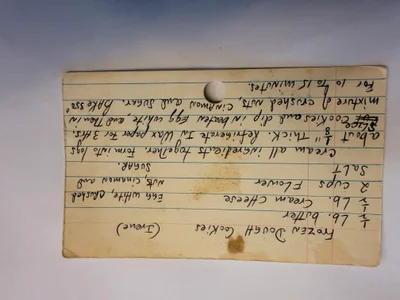 FROZEN DOUGH COOKIES (IRENE)
½ Lb. butter
½ Lb. Cream Cheese
2 cups Flower
SALT
EGG WHITE, CRUSHED
NUTS, CINAMON AND
SUGAR.
Cream all ingredients together. Form into logs
about 1/8" THICK. Refrigerate IN WAX paper for 3 HRS.
Slice Cookies and dip in beaten Egg white, and Then in
mixture of crushed nuts, CINAMON and SUGAR. BAKE 350°
FOR 10 to 15 minutes.